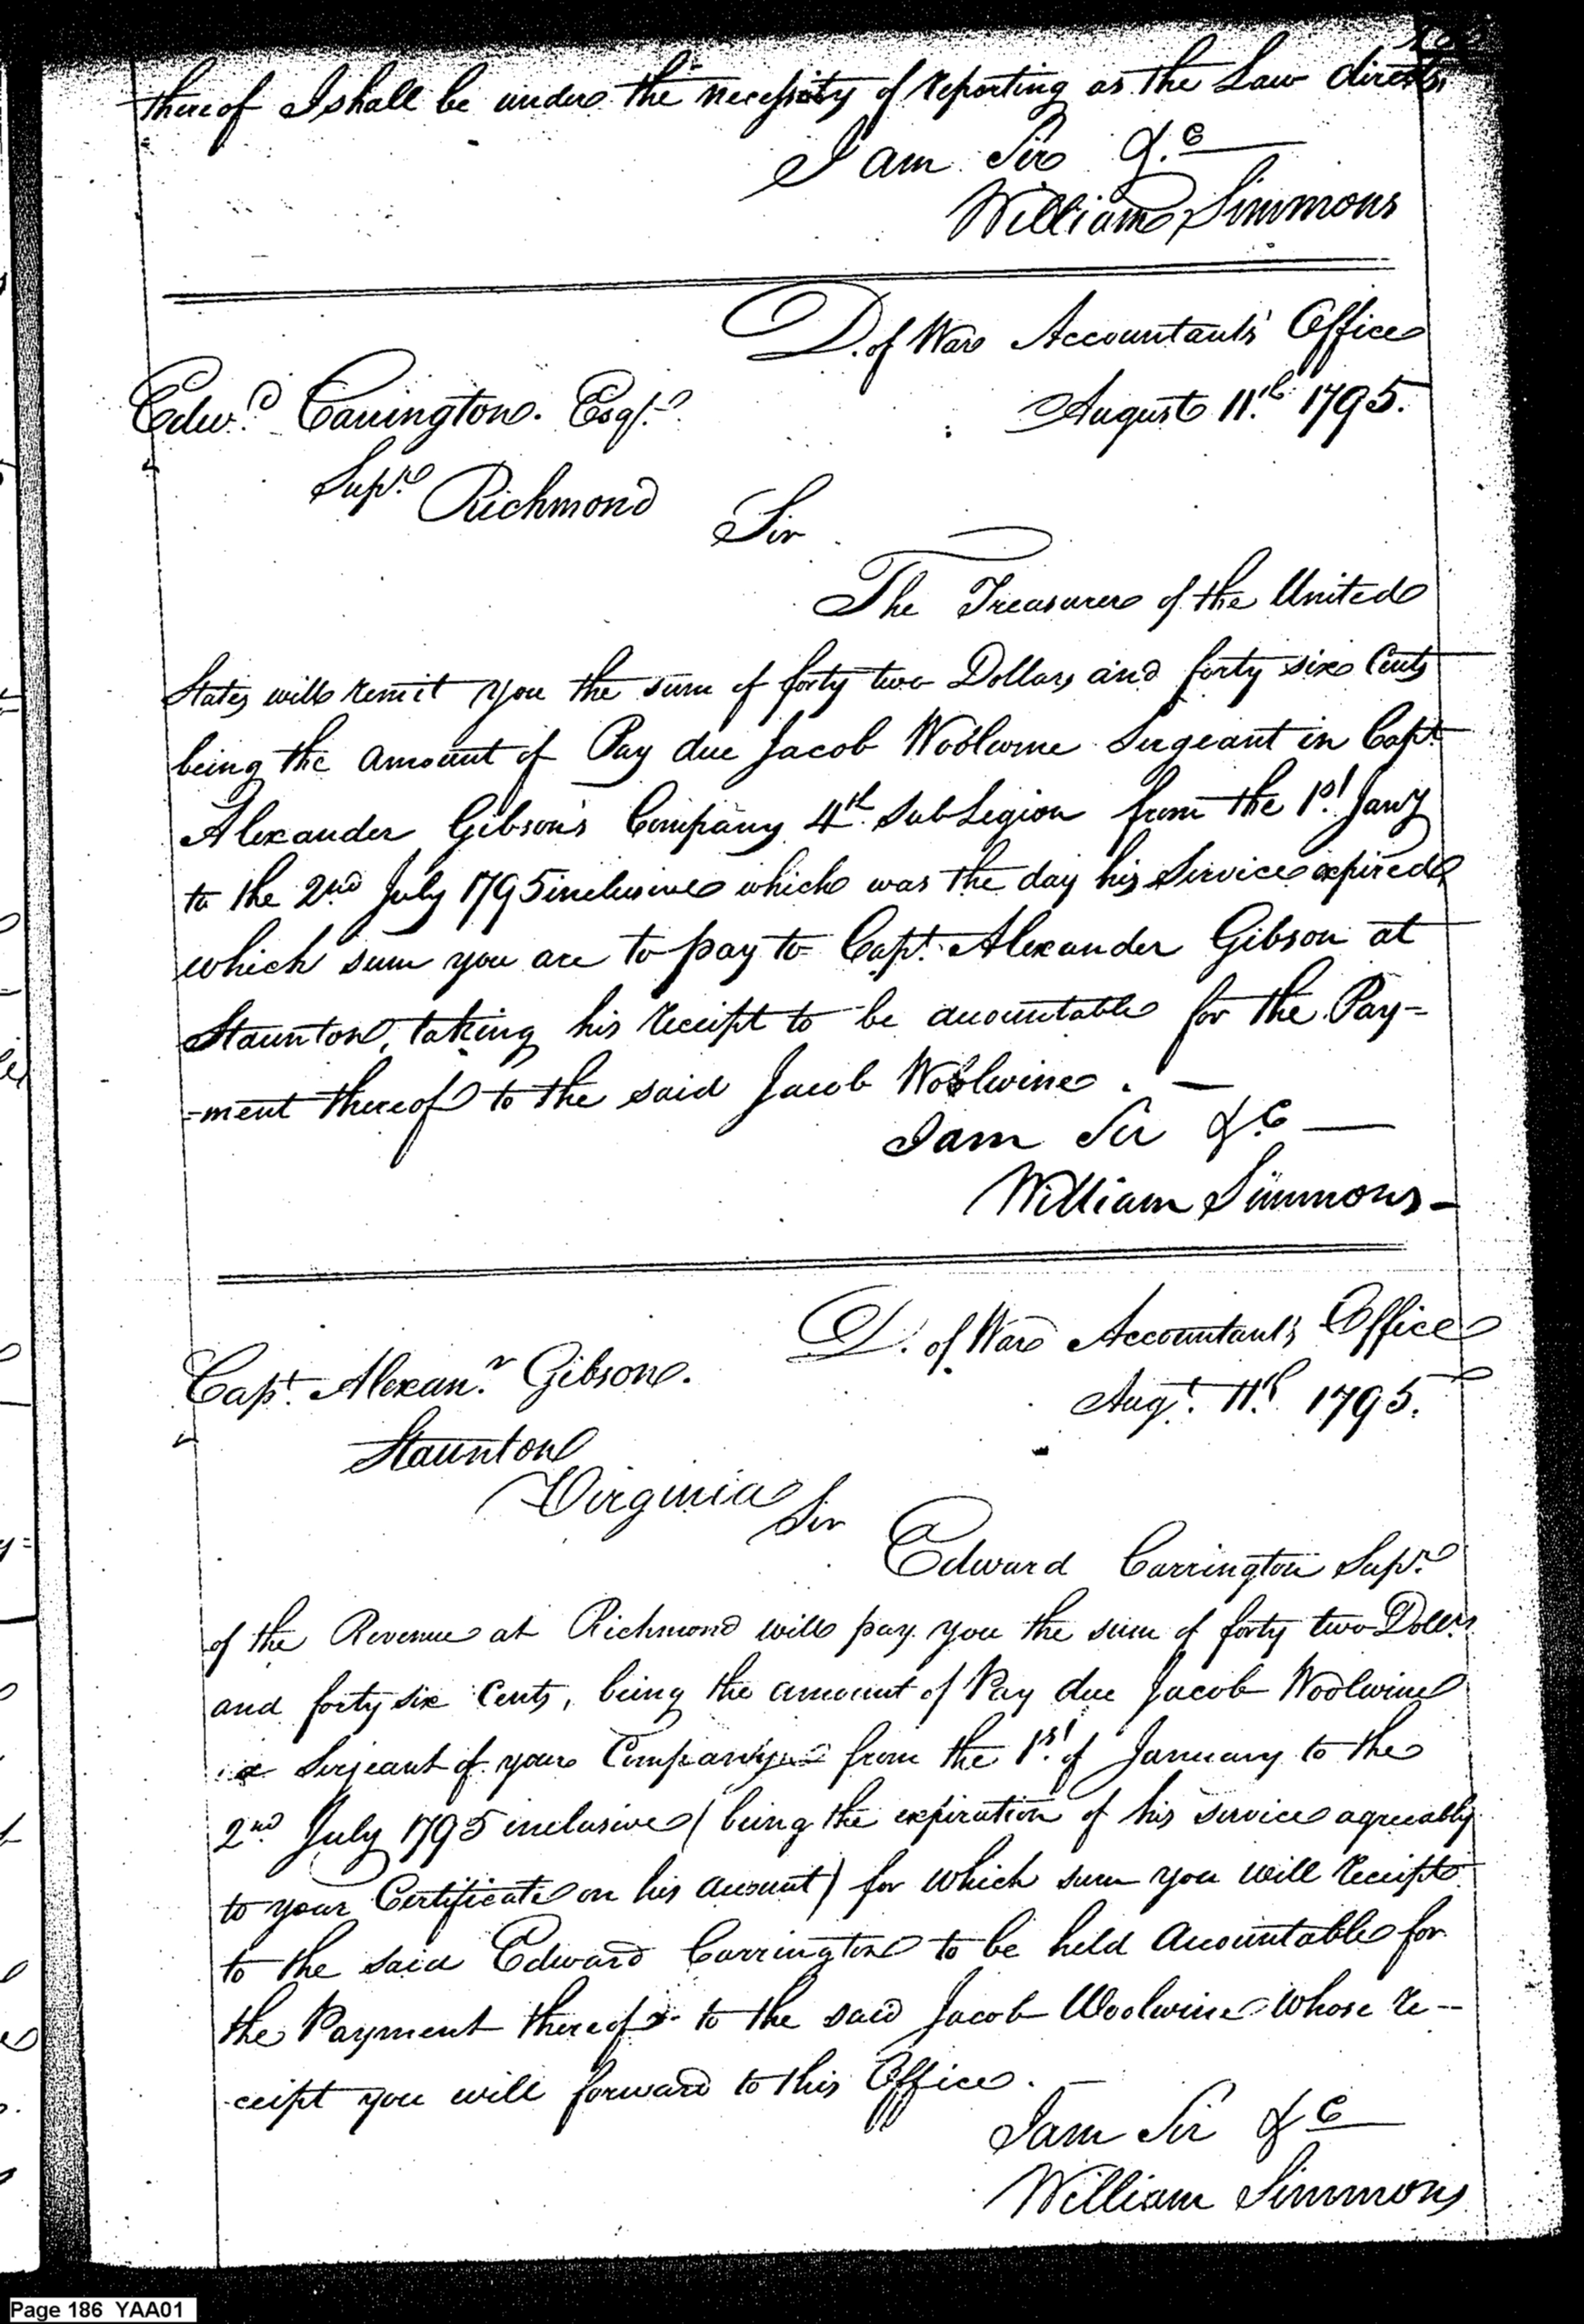 thereof I shall be under the necessity of reporting as the Law directs,
I am Sir &.c
William Simmons
D. of War Accountant's Office
Edw.d Carrington. Esq.r
August 11.th 1795.
Sup.r Richmond
Sir
The Treasurer of the United
States will remit you the sum of forty two Dollars and forty six Cents
being the amount of Pay due Jacob Woolwine Sergeant in Capt.
Alexander Gibson's Company 4th Sub Legion from the 1st Jany
to the 2nd July 1795 inclusive which was the day his Service expired
which sum you are to pay to Capt. Alexander Gibson at
Staunton, taking his receipt to be accountable for the Pay-
-ment thereof to the said Jacob Woolwine. —
I am Sir &.c —
William Simmons -
D. of War Accountant's Office
Capt. Alexan.r Gibson.
Augt. 11th 1795.
Staunton
Virginia
Sir
Edward Carrington Sup.r
of the Revenue at Richmond will pay you the sum of forty two Dollrs
and forty six Cents, being the amount of Pay due Jacob Woolwine
a Serjeant of your Company from the 1st of January to the
2nd July 1795 inclusive (being the expiration of his service agreeably
to your Certificate on his account) for which sum you will receipt
to the said Edward Carrington to be held Accountable for
the Payment thereof to the said Jacob Woolwine whose re-
-ceipt you will forward to this Office. —
I am Sir &c
William Simmons
Page 186 YAA01